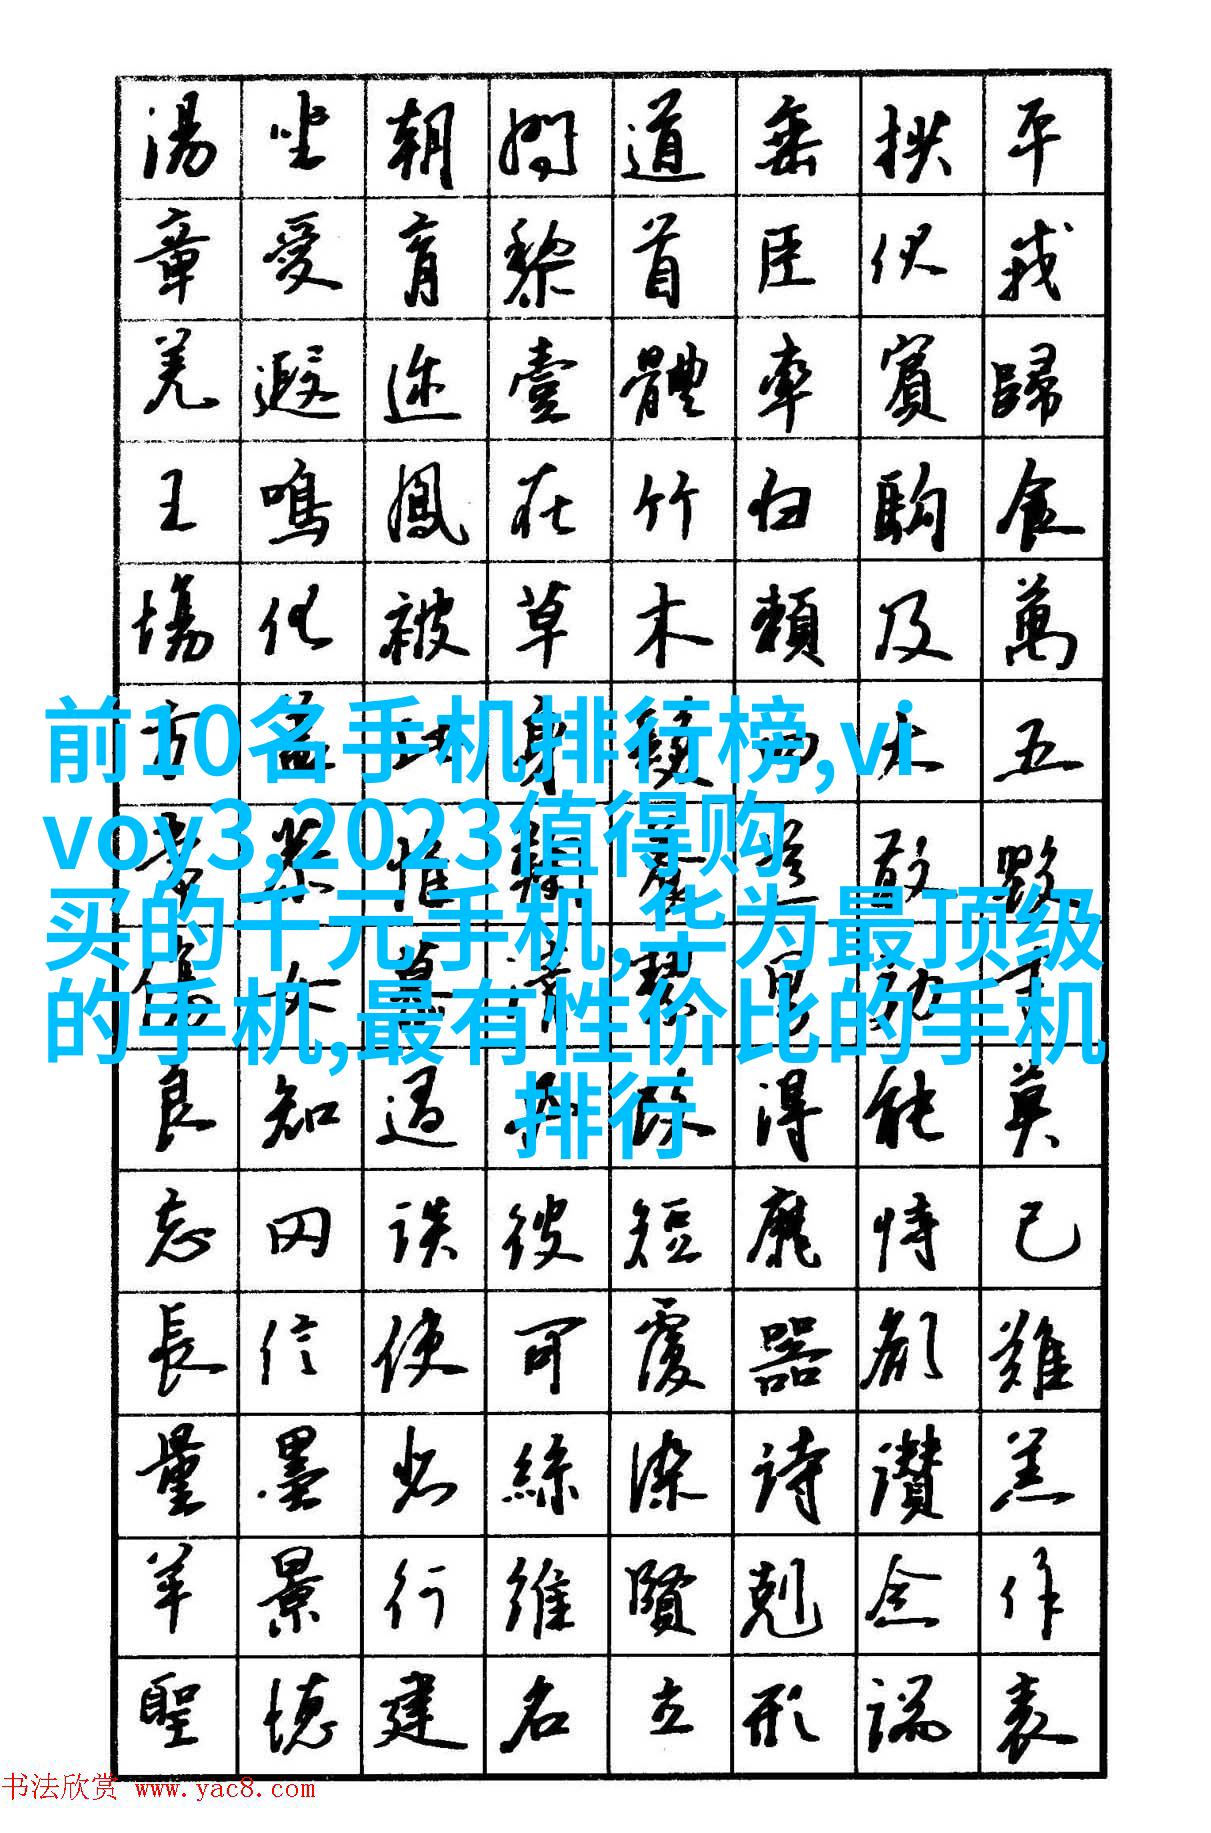 湯坐朝問道垂拱平
章愛育黎首臣伏戎
羌遐迩壹體率賓歸
王鳴鳳在竹白駒食
場化被草木賴及萬
方蓋此身髮四大五
前10名手机排行榜,vi
voy3,2023值得购
买的千元手机,华为最顶级
的手机,最有性价比的手机
排行
良知過必改得能莫
忘罔談彼短靡恃己
長信使可覆器欲難
量墨悲絲染詩讚羔
羊景行維賢剋念作
聖德建名立形端表
书法欣赏 www.yac8.com